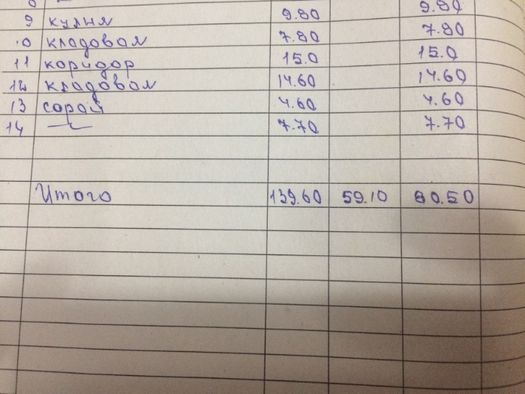 9 кухня 9.80 9.80
10 кладовая 7.80 7.80
11 коридор 15.0 15.0
12 кладовая 14.60 14.60
13 сарай 4.60 4.60
14 7.70 7.70
Итого 139.60 59.10 80.50